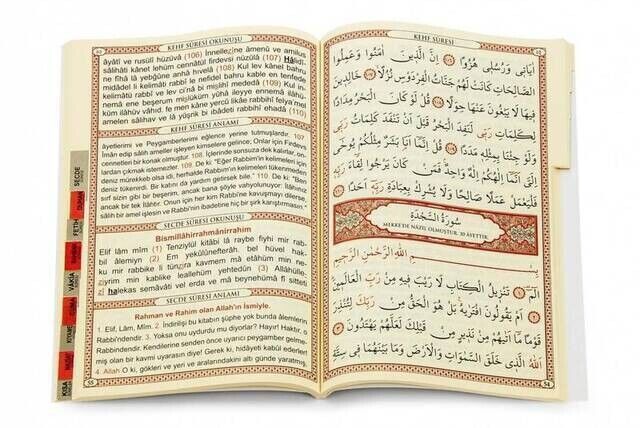 KEHF SÛRESİ OKUNUŞU
âyâtî ve rusulî hüzüvâ (106) İnnellezîne âmenû ve amilus
sâlihâti kânet lehum cennâtül firdevsi nüzülâ (107) Hâlidî-
ne fîhâ lâ yebğûne anhâ hıvelâ (108) Kul lev kânel bahru
midâdel li kelimâti rabbî le nefidel bahru kable en tenfede
kelimâtü rabbî ve lev ci'nâ bi mislihî mededâ (109) Kul in-
nemâ ene beşerum mislüküm yûhâ ileyye ennemâ ilâhü-
küm ilâhuv vâhıd, fe men kâne yercû likâe rabbihî felya'mel
amelen sâlihav ve lâ yüşrik bi ıbâdeti rabbihî ehadâ (110)
KEHF SÛRESİ ANLAMI
âyetlerimi ve Peygamberlerimi eğlence yerine tutmuşlardır. 107
İman edip salih ameller işleyen kimselere gelince; Onlar için Firdevs
cennetleri bir konak olmuştur. 108. İçlerinde sonsuza dek kalırlar, on-
lardan çıkmak istemezler. 109. De ki: "Eğer Rabbim'in kelimeleri için
deniz mürekkeb olsa idi, herhalde Rabbim'in kelimeleri tükenmeden
deniz tükenirdi. Bir katını da yardım getirsek bile." 110. De ki: "Ben
sırf sizin gibi bir beşerim, ancak bana şöyle vahyolunuyor: İlâhınız
ancak bir tek ilâhtır. Onun için her kim Rabbi'ne kavuşmayı dilerse,
salih bir amel işlesin ve Rabbi'nin ibadetine hiç bir şirk karıştırmasın."
SECDE SÛRESİ OKUNUŞU
Bismillâhirrahmânirrahîm
Elif lâm mîm (1) Tenzîylül kitâbi lâ raybe fîyhi mir rab-
bil âlemîyn (2) Em yekûlûnefterâh, bel hüvel hak-
ku mir rabbike li tünzira kavmem mâ etâhüm min ne-
zîyrim min kablike leallehüm yehtedûn (3) Allâhülle-
zî halekas semâvâti vel erda ve mâ beynehümâ fî sitteti
SECDE SÛRESİ ANLAMI
Rahman ve Rahim olan Allah'ın İsmiyle.
1. Elif, Lâm, Mîm. 2. İndirilişi bu kitabın şüphe yok bunda âlemlerin
Rabbi'ndendir. 3. Yoksa onu uydurdu mu diyorlar? Hayır! Haktır, o
Rabbi'ndendir. Kendilerine senden önce uyarıcı peygamber gelme-
miş olan bir kavmi uyarasın diye! Gerek ki, hidâyeti kabûl ederler!
4. Allah O ki, gökleri ve yeri ve aralarındakini altı günde yaratmış,
SECDE
DUHAN
FETİH
VAKIA
KEHF SÛRESİ
اٰيَاتٖي وَرُسُلٖي هُزُوًا ﴿١٠٦﴾ اِنَّ الَّذٖينَ اٰمَنُوا وَعَمِلُوا
الصَّالِحَاتِ كَانَتْ لَهُمْ جَنَّاتُ الْفِرْدَوْسِ نُزُلًا ﴿١٠٧﴾ خَالِدٖينَ
فٖيهَا لَا يَبْغُونَ عَنْهَا حِوَلًا ﴿١٠٨﴾ قُلْ لَوْ كَانَ الْبَحْرُ مِدَادًا
لِكَلِمَاتِ رَبّٖي لَنَفِدَ الْبَحْرُ قَبْلَ اَنْ تَنْفَدَ كَلِمَاتُ رَبّٖي
وَلَوْ جِئْنَا بِمِثْلِهٖ مَدَدًا ﴿١٠٩﴾ قُلْ اِنَّمَا اَنَا بَشَرٌ مِثْلُكُمْ يُوحٰٓى
اِلَيَّ اَنَّمَا اِلٰهُكُمْ اِلٰهٌ وَاحِدٌ فَمَنْ كَانَ يَرْجُوا لِقَاءَ رَبِّهٖ
فَلْيَعْمَلْ عَمَلًا صَالِحًا وَلَا يُشْرِكْ بِعِبَادَةِ رَبِّهٖ اَحَدًا ﴿١١٠﴾
سُورَةُ السَّجْدَةِ
MEKKE'DE NÂZİL OLMUŞTUR. 30 ÂYETTİR.
بِسْمِ اللهِ الرَّحْمٰنِ الرَّحٖيمِ
الٓمٓ ﴿١﴾ تَنْزٖيلُ الْكِتَابِ لَا رَيْبَ فٖيهِ مِنْ رَبِّ الْعَالَمٖينَ
﴿٢﴾ اَمْ يَقُولُونَ افْتَرٰيهُ بَلْ هُوَ الْحَقُّ مِنْ رَبِّكَ لِتُنْذِرَ
قَوْمًا مَا اَتٰيهُمْ مِنْ نَذٖيرٍ مِنْ قَبْلِكَ لَعَلَّهُمْ يَهْتَدُونَ ﴿٣﴾
اَللهُ الَّذٖي خَلَقَ السَّمٰوَاتِ وَالْاَرْضَ وَمَا بَيْنَهُمَا فٖي سِتَّةِ